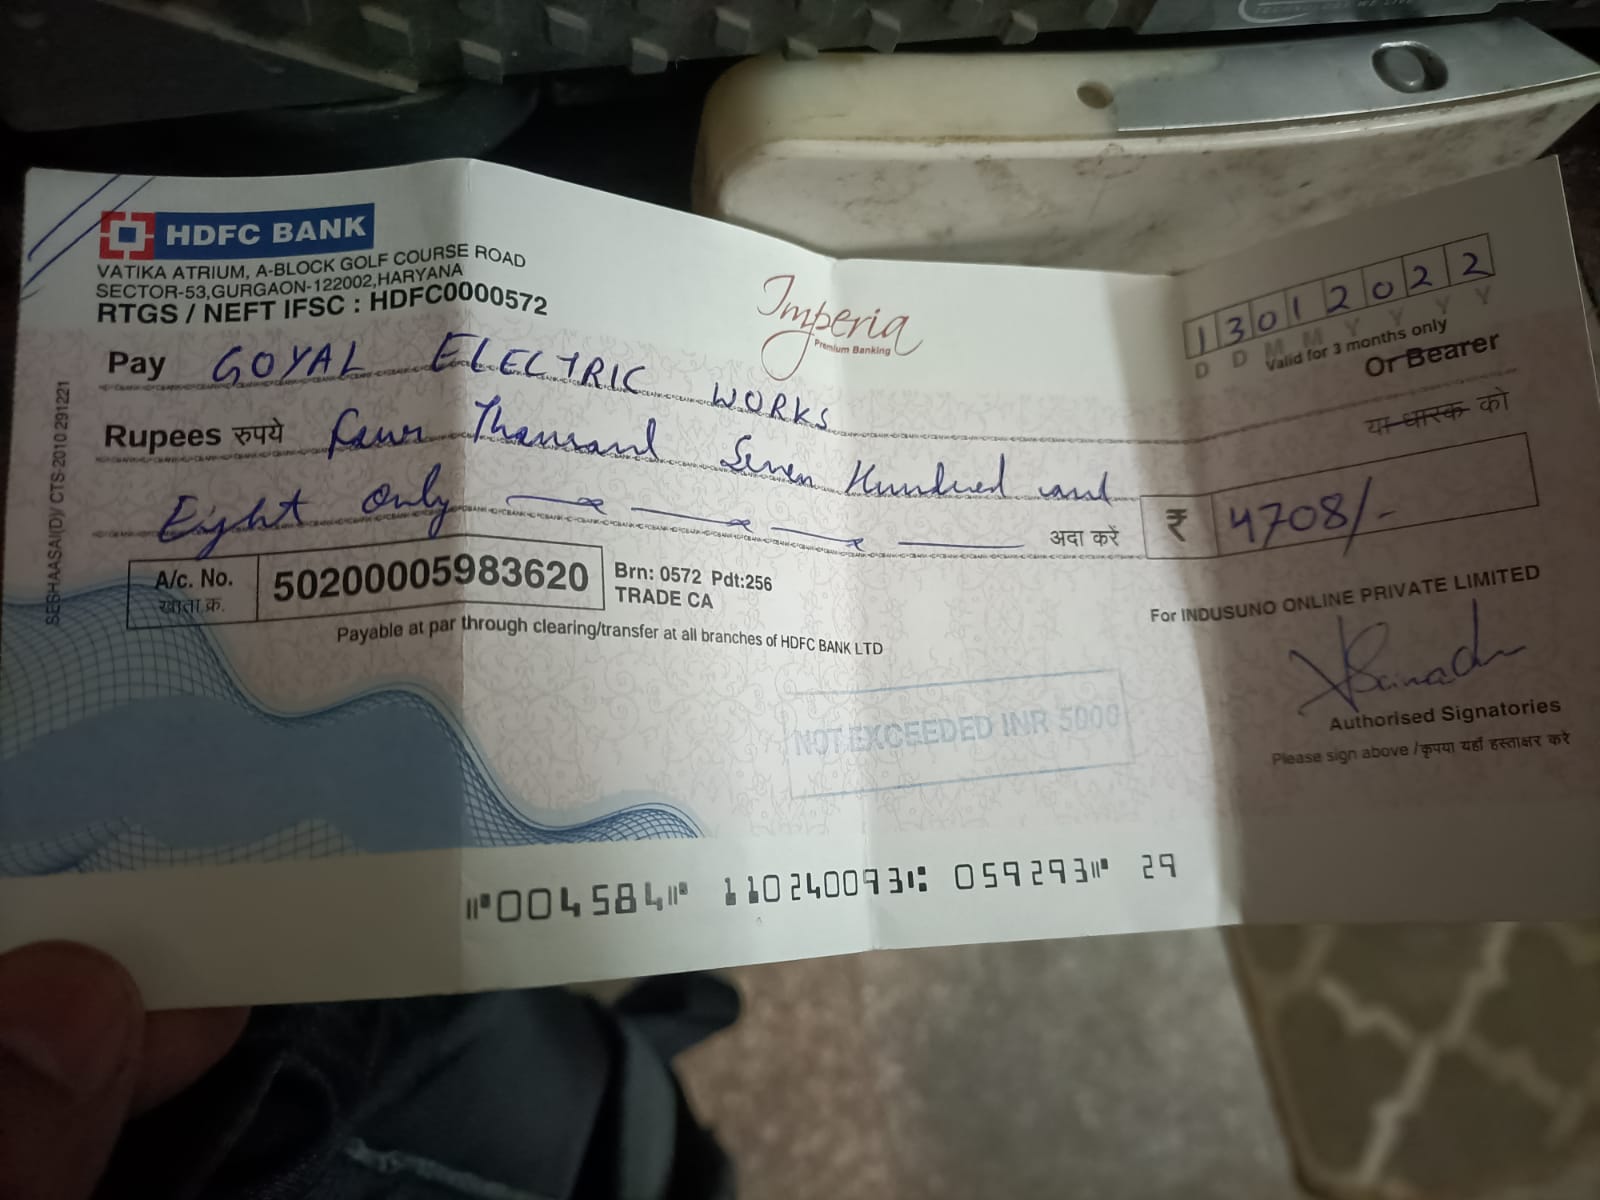 HDFC BANK
VATIKA ATRIUM, A-BLOCK GOLF COURSE ROAD
SECTOR-53,GURGAON-122002,HARYANA
RTGS / NEFT IFSC : HDFC0000572
Imperia
Premium Banking
13012022
D D M M Y Y Y Y
Valid for 3 months only
Pay GOYAL ELECTRIC WORKS
Or Bearer
या धारक को
Rupees रुपये Four Thousand Seven Hundred and
Eight Only
अदा करें
₹ 4708/-
A/c. No.
खाता क्र.
50200005983620
Brn: 0572 Pdt:256
TRADE CA
Payable at par through clearing/transfer at all branches of HDFC BANK LTD
For INDUSUNO ONLINE PRIVATE LIMITED
NOT EXCEEDED INR 5000
Authorised Signatories
Please sign above / कृपया यहाँ हस्ताक्षर करे
SESHAASAI(D)/ CTS-2010 291221
⑈004584⑈ 110240093⑆ 059293⑈ 29